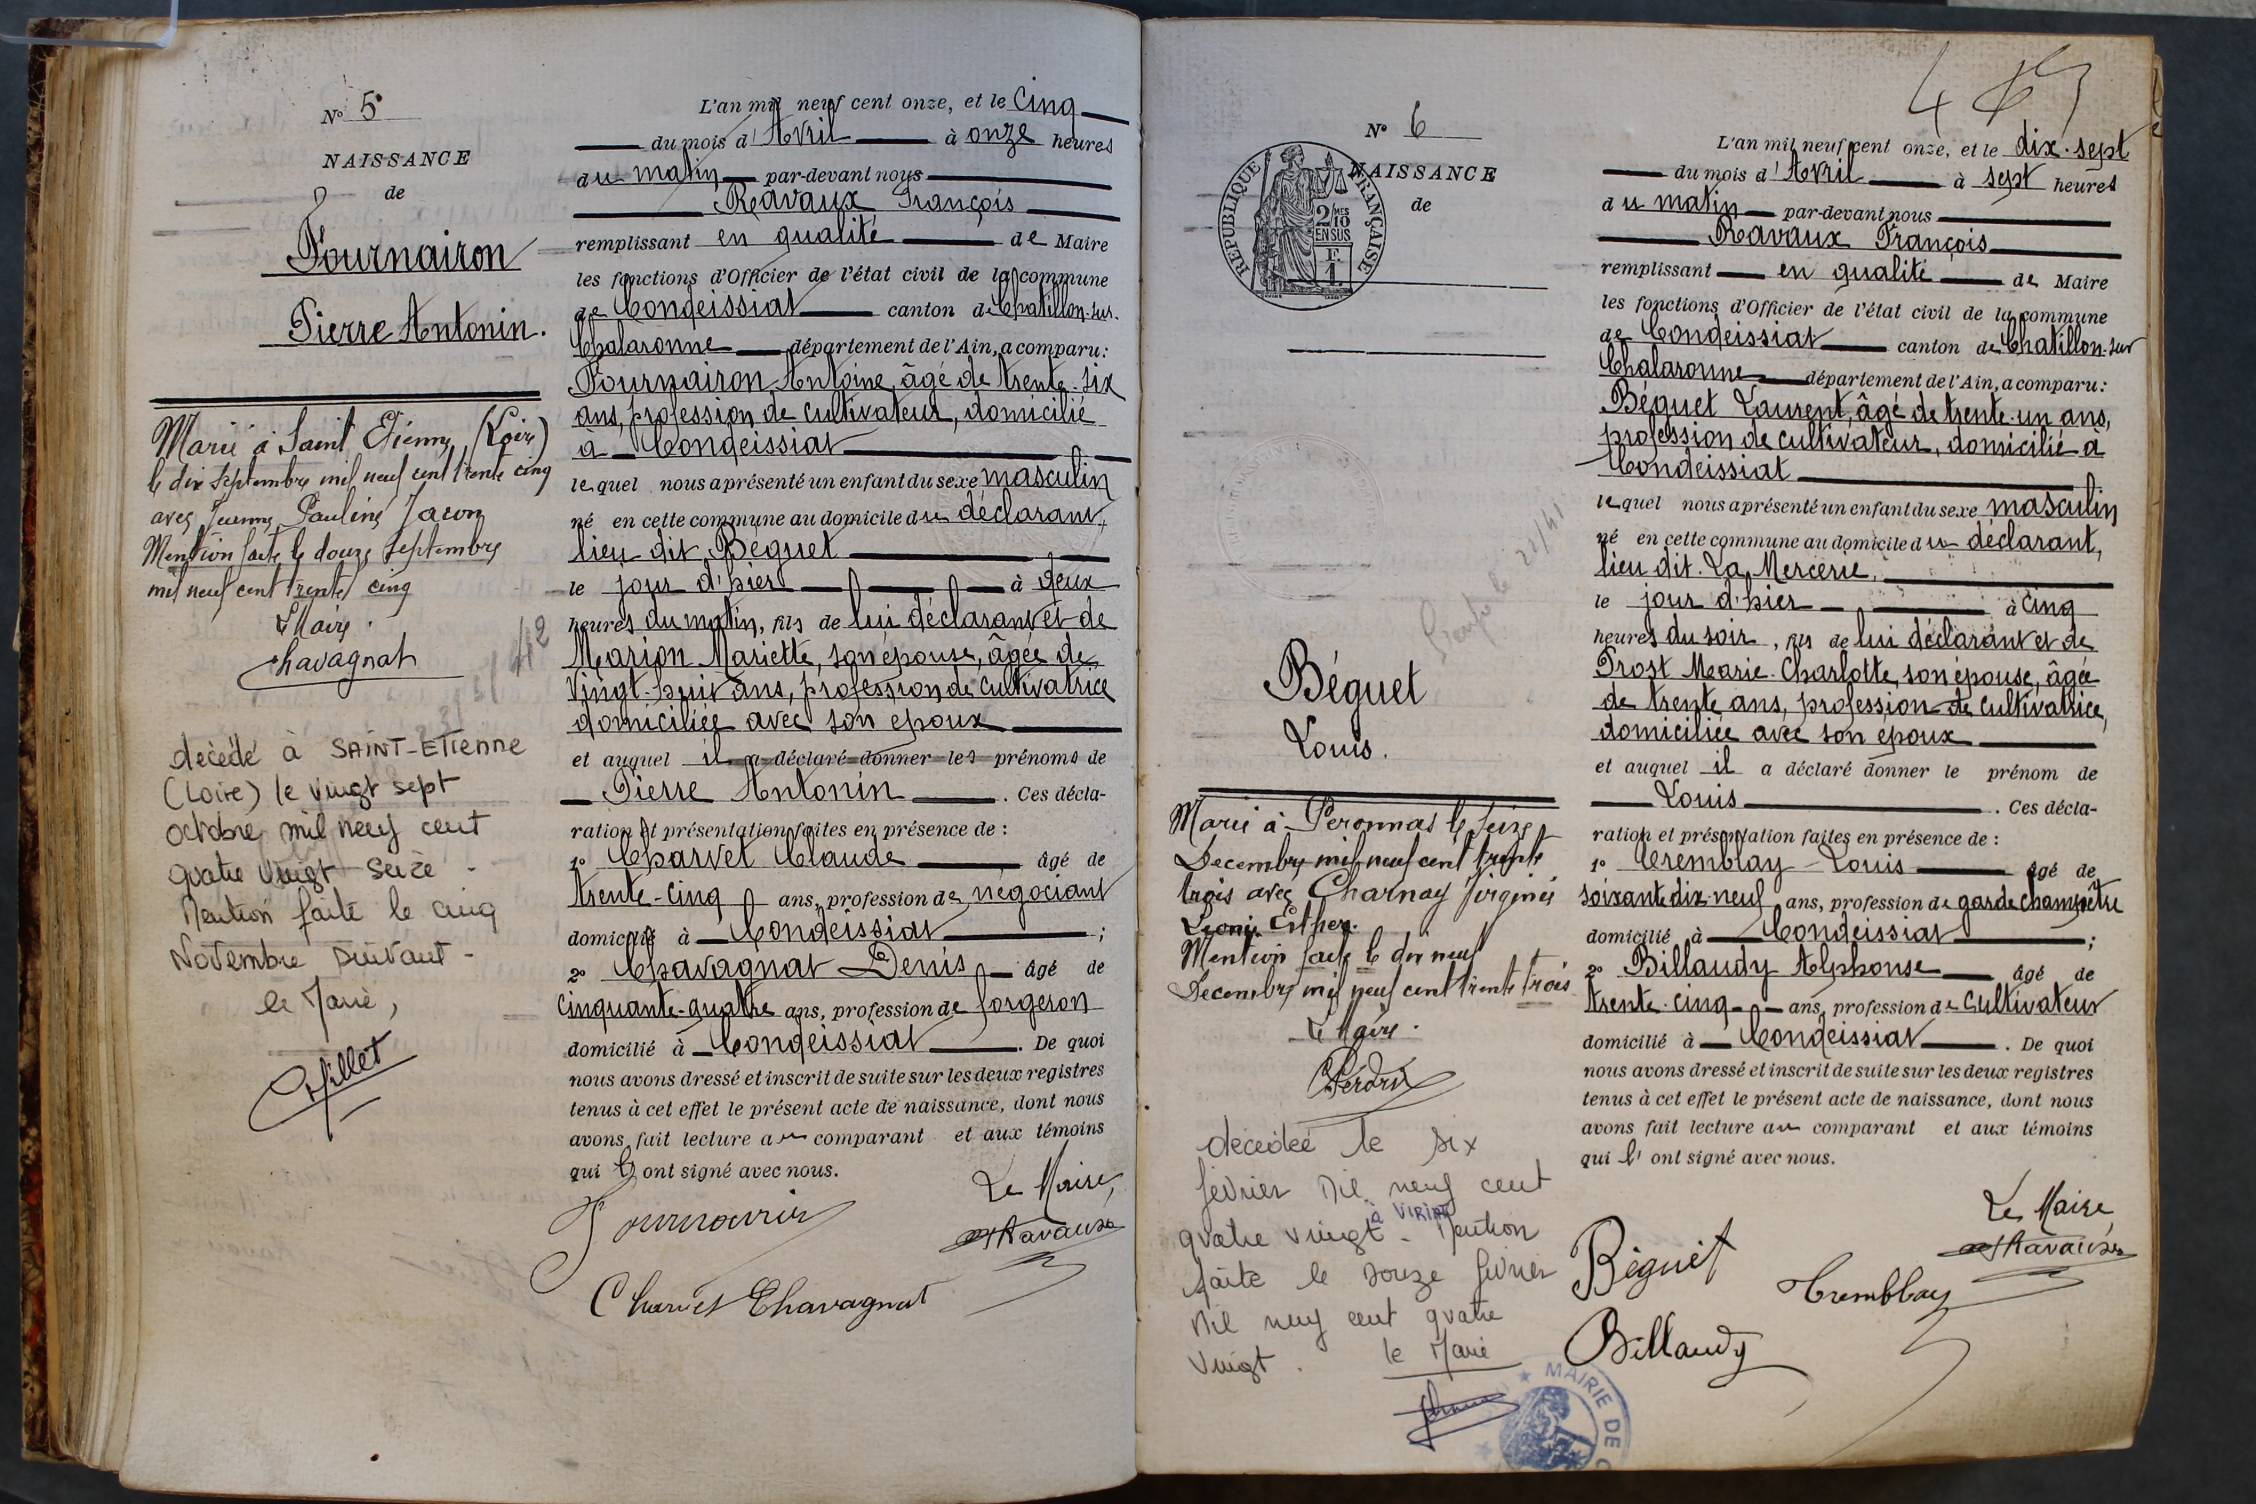 N° 5
NAISSANCE
de
Fournairon
Pierre Antonin.
Marié à Saint Etienne (Loire)
le dix Septembre mil neuf cent trente cinq
avec Jeanne Pauline Jacon
Mention faite le douze Septembre
mil neuf cent trente cinq
Le Maire.
Chavagnat
décédé à SAINT-ETIENNE
(Loire) le vingt sept
octobre mil neuf cent
quatre vingt seize -
Mention faite le cinq
Novembre suivant -
le Maire,
L'an mil neuf cent onze, et le Cinq
du mois d'Avril à onze heures
du matin par-devant nous
Ravaux François
remplissant en qualité de Maire
les fonctions d'Officier de l'état civil de la commune
de Condeissiat canton de Chatillon-sur-
Chalaronne département de l'Ain, a comparu:
Fournairon Antoine, âgé de trente-six
ans, profession de cultivateur, domicilié
à Condeissiat
lequel nous a présenté un enfant du sexe masculin
né en cette commune au domicile du déclarant,
lieu dit Béguet
le jour d'hier à deux
heures du matin, fils de lui déclarant et de
Marion Mariette, son épouse, âgée de
vingt-huit ans, profession de cultivatrice
domiciliée avec son époux
et auquel il a déclaré donner les prénoms de
Pierre Antonin. Ces décla-
ration et présentation faites en présence de :
1° Charvet Claude âgé de
trente-cinq ans, profession de négociant
domicilié à Condeissiat ;
2° Chavagnat Denis âgé de
cinquante-quatre ans, profession de forgeron
domicilié à Condeissiat. De quoi
nous avons dressé et inscrit de suite sur les deux registres
tenus à cet effet le présent acte de naissance, dont nous
avons fait lecture au comparant et aux témoins
qui l' ont signé avec nous.
Le Maire,
Fournairon
Ravaux
Charvet Chavagnat
N° 6
NAISSANCE
de
REPUBLIQUE FRANÇAISE
2/10 MES
EN SUS
F
1
Béguet
Louis.
Marié à Peronnas le seize
Decembre mil neuf cent trente
trois avec Charnay Virginie
Leonie Esther.
Mention faite le dix neuf
Decembre mil neuf cent trente trois
Le Maire.
décédé le six
février mil neuf cent
à VIRIAT
quatre vingt - Mention
faite le douze février
mil neuf cent quatre
vingt. le Maire
MAIRIE DE
L'an mil neuf cent onze, et le dix-sept
du mois d'Avril à sept heures
du matin par-devant nous
Ravaux François
remplissant en qualité de Maire
les fonctions d'Officier de l'état civil de la commune
de Condeissiat canton de Chatillon-sur
Chalaronne département de l'Ain, a comparu:
Béguet Laurent, âgé de trente-un ans,
profession de cultivateur, domicilié à
Condeissiat
lequel nous a présenté un enfant du sexe masculin
né en cette commune au domicile du déclarant,
lieu dit. La Mercerie,
le jour d'hier à cinq
heures du soir, fils de lui déclarant et de
Prost Marie-Charlotte, son épouse, âgée
de trente ans, profession de cultivatrice,
domiciliée avec son époux
et auquel il a déclaré donner le prénom de
Louis. Ces décla-
ration et présentation faites en présence de :
1° Tremblay Louis âgé de
soixante dix-neuf ans, profession de garde champêtre
domicilié à Condeissiat ;
2° Billaudy Alphonse âgé de
trente-cinq ans, profession de cultivateur
domicilié à Condeissiat. De quoi
nous avons dressé et inscrit de suite sur les deux registres
tenus à cet effet le présent acte de naissance, dont nous
avons fait lecture au comparant et aux témoins
qui l' ont signé avec nous.
Le Maire,
Ravaux
Béguet
Tremblay
Billaudy